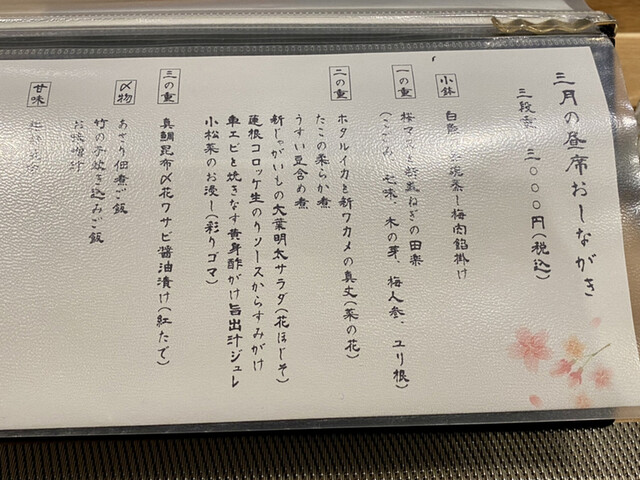 三月の昼席おしながき
三段重 三〇〇〇円(税込)
小鉢
蒸し梅肉餡掛け
一の重
桜マスと ねぎの田楽
七味、木の芽、梅人参、ユリ根)
二の重
ホタルイカと新ワカメの真丈(菜の花)
たこの柔らか煮
うすい豆含め煮
新じゃがいもの大葉明太サラダ(花ほじそ)
蓮根コロッケ生のりソースからすみがけ
車エビと焼きなす黄身酢がけ旨出汁ジュレ
小松菜のお浸し(彩りゴマ)
三の重
真鯛昆布〆花ワサビ醤油漬け(紅たで)
〆物
あさり佃煮ご飯
竹の子炊き込みご飯
お味噌汁
甘味